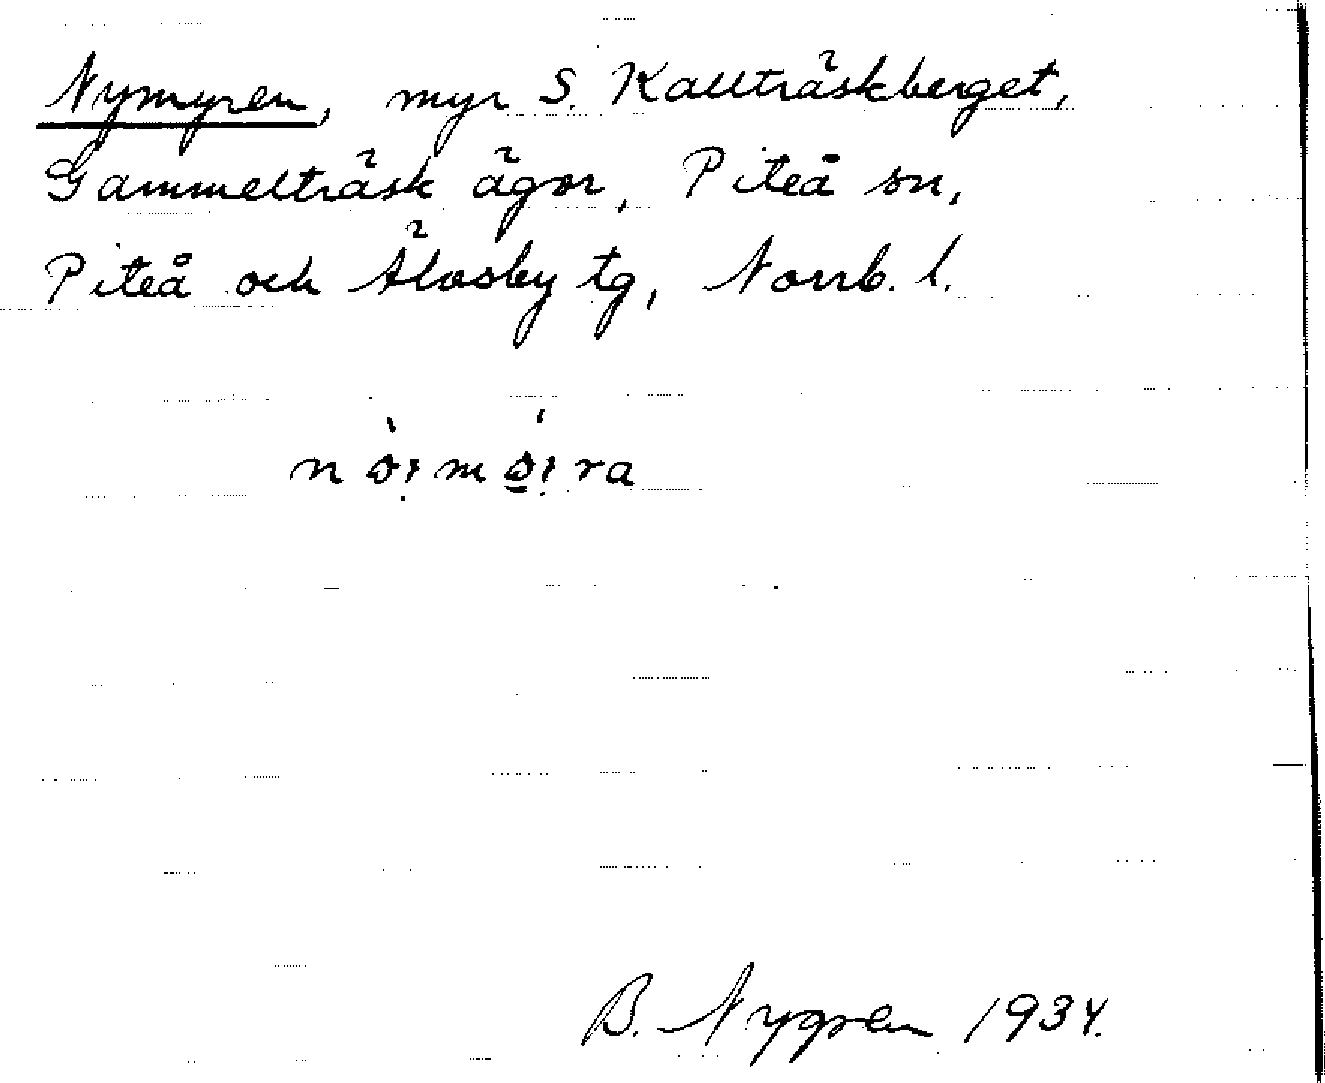 Nymyren, myr S. Kallträskberget,
Gammelträsk ägor, Piteå sn,
Piteå och Älvsby tg, Norrb. l.
B. Nygren 1934.